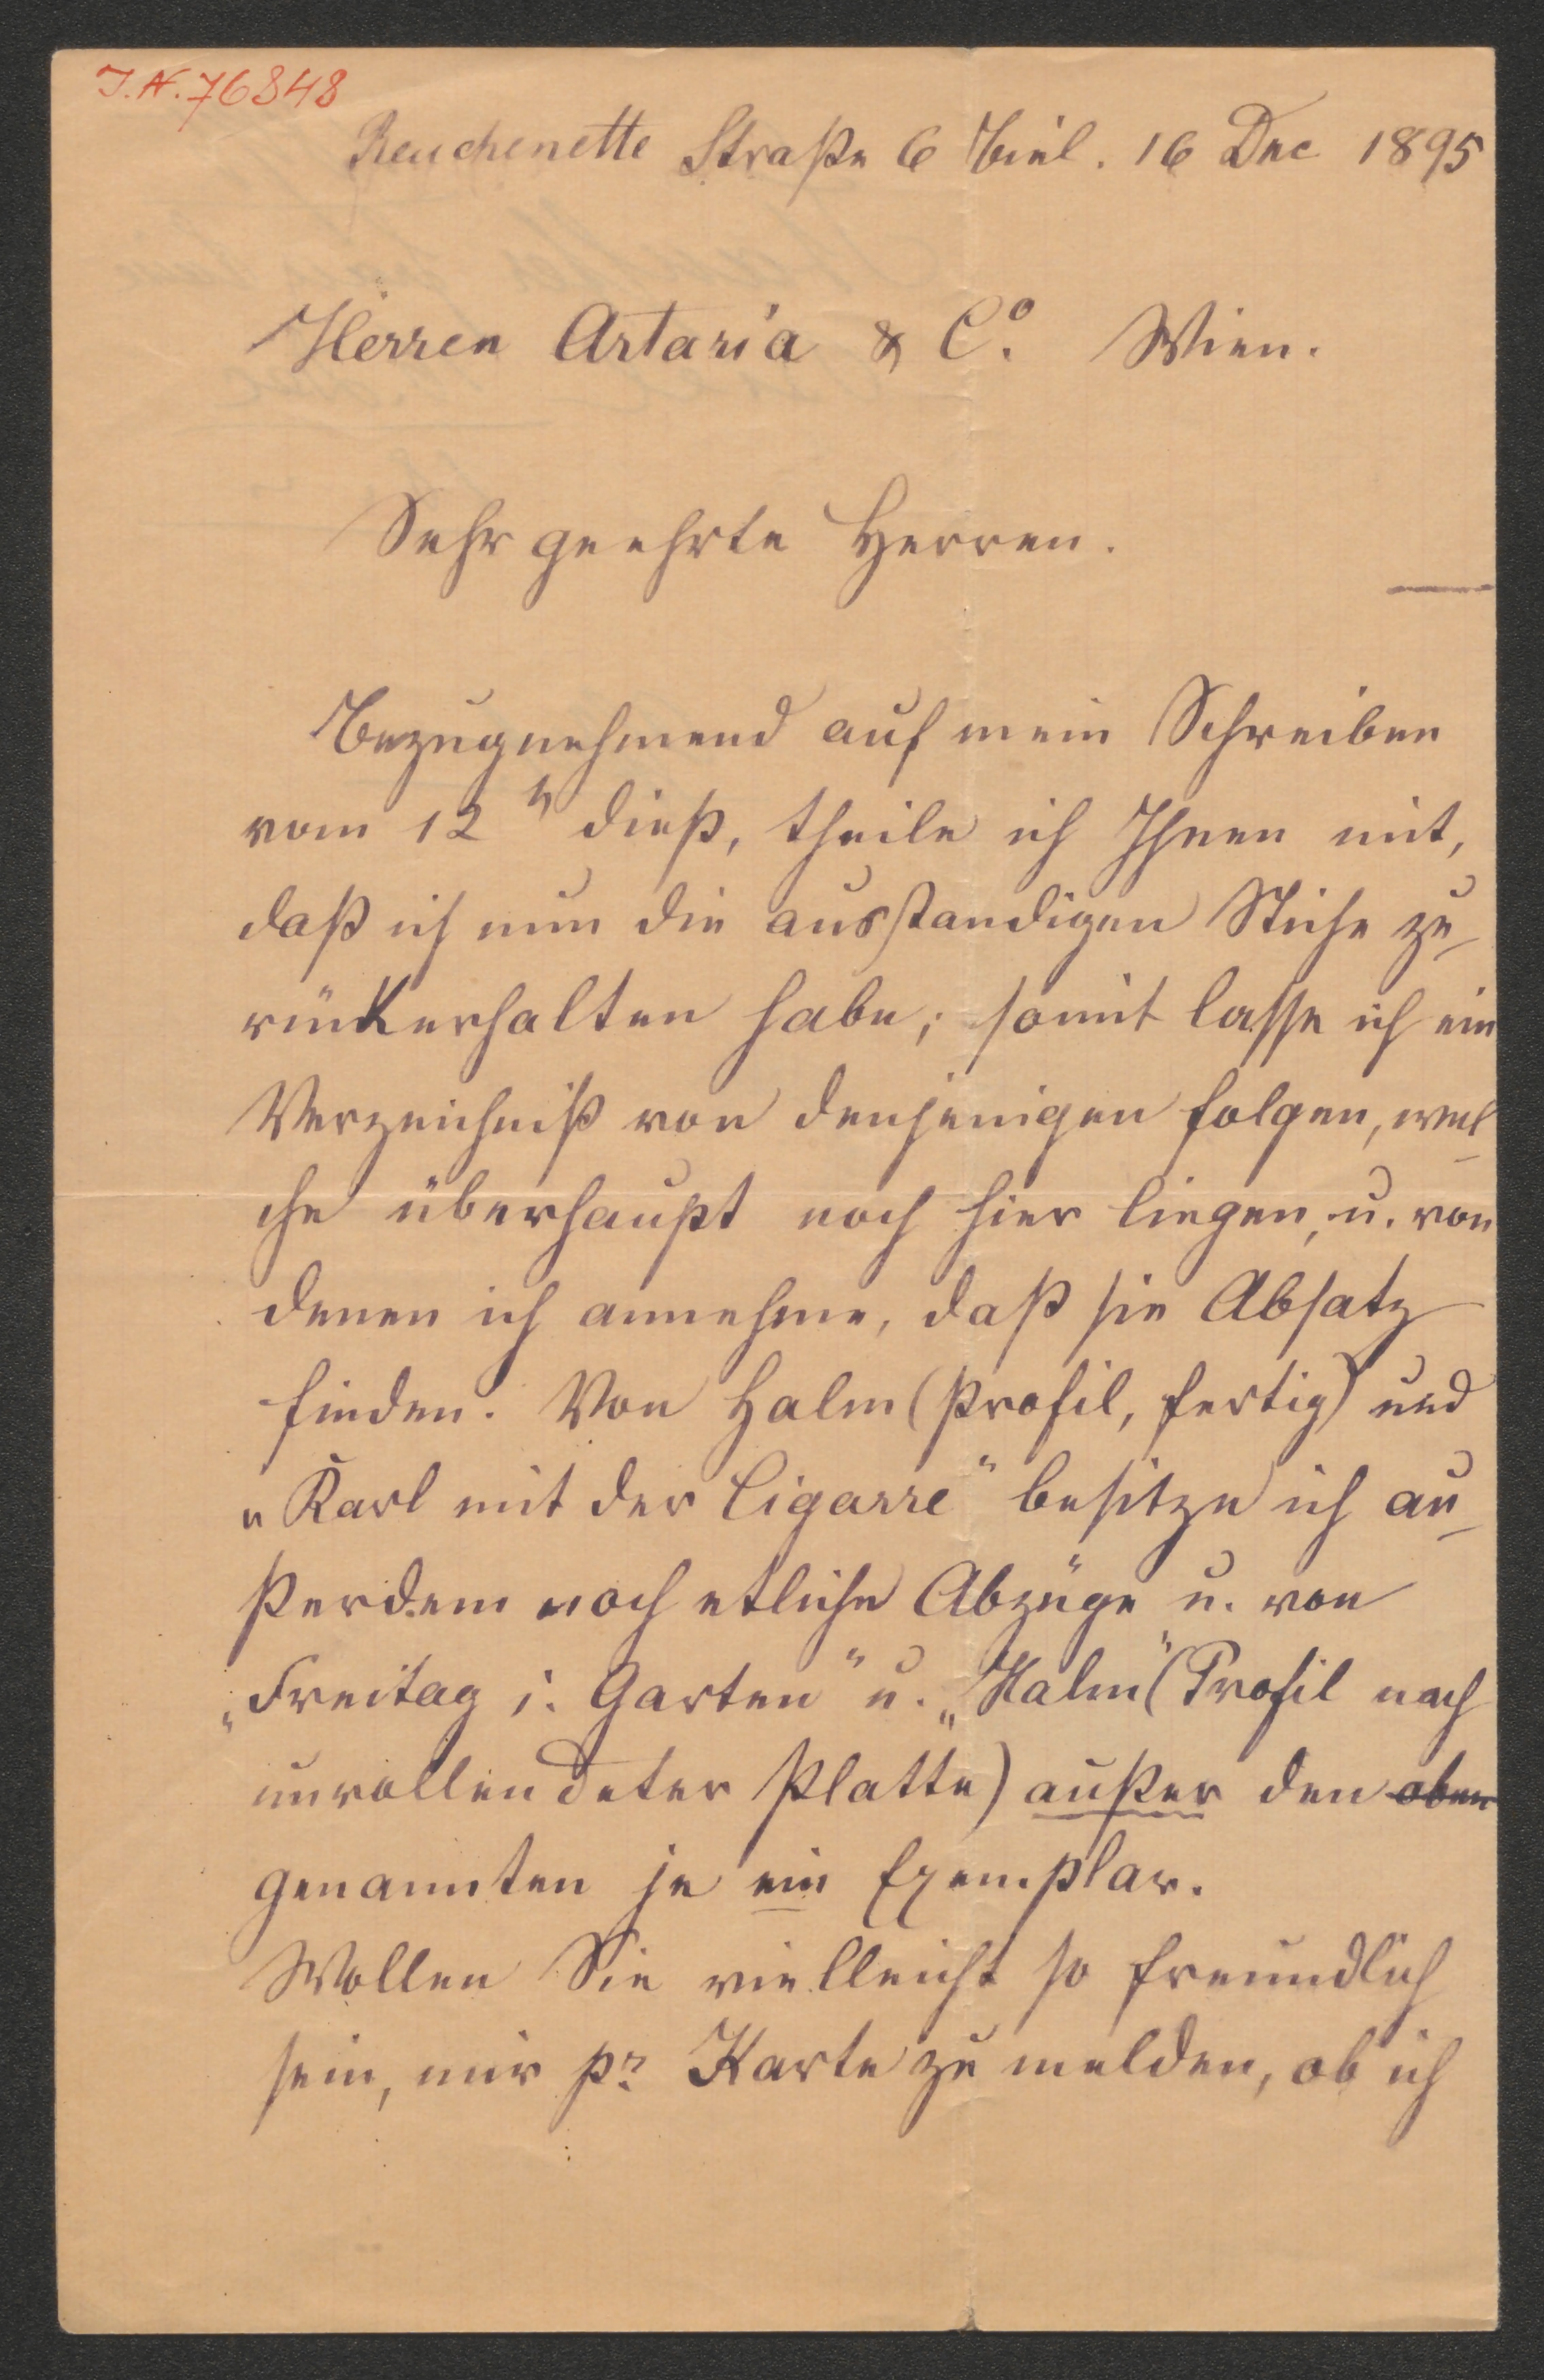 J.N. 76848
Reuchenette Straße 6 Biel. 16 Dec 1895
Herren Artaria & Co. Wien.
Sehr geehrte Herren.
Bezugnehmend auf mein Schreiben
vom 12n dieß, theile ich Ihnen mit,
daß ich nun die ausstandigen Stiche zu-
rückerhalten habe; somit lasse ich ein
Verzeichniß von denjenigen folgen, wel-
che überhaupt noch hier liegen, u. von
denen ich annehme, daß sie Absatz
finden. Von Halm (Profil, fertig) und
„Karl mit der Cigarre" besitze ich au-
ßerdem noch etliche Abzüge u. von
„Freitag i. Garten" u. „Halm" (Profil nach
unvollendeter Platte) außer den oben
genannten je ein Exemplar.
Wollen Sie vielleicht so freundlich
sein, mir pr Karte zu melden, ob ich